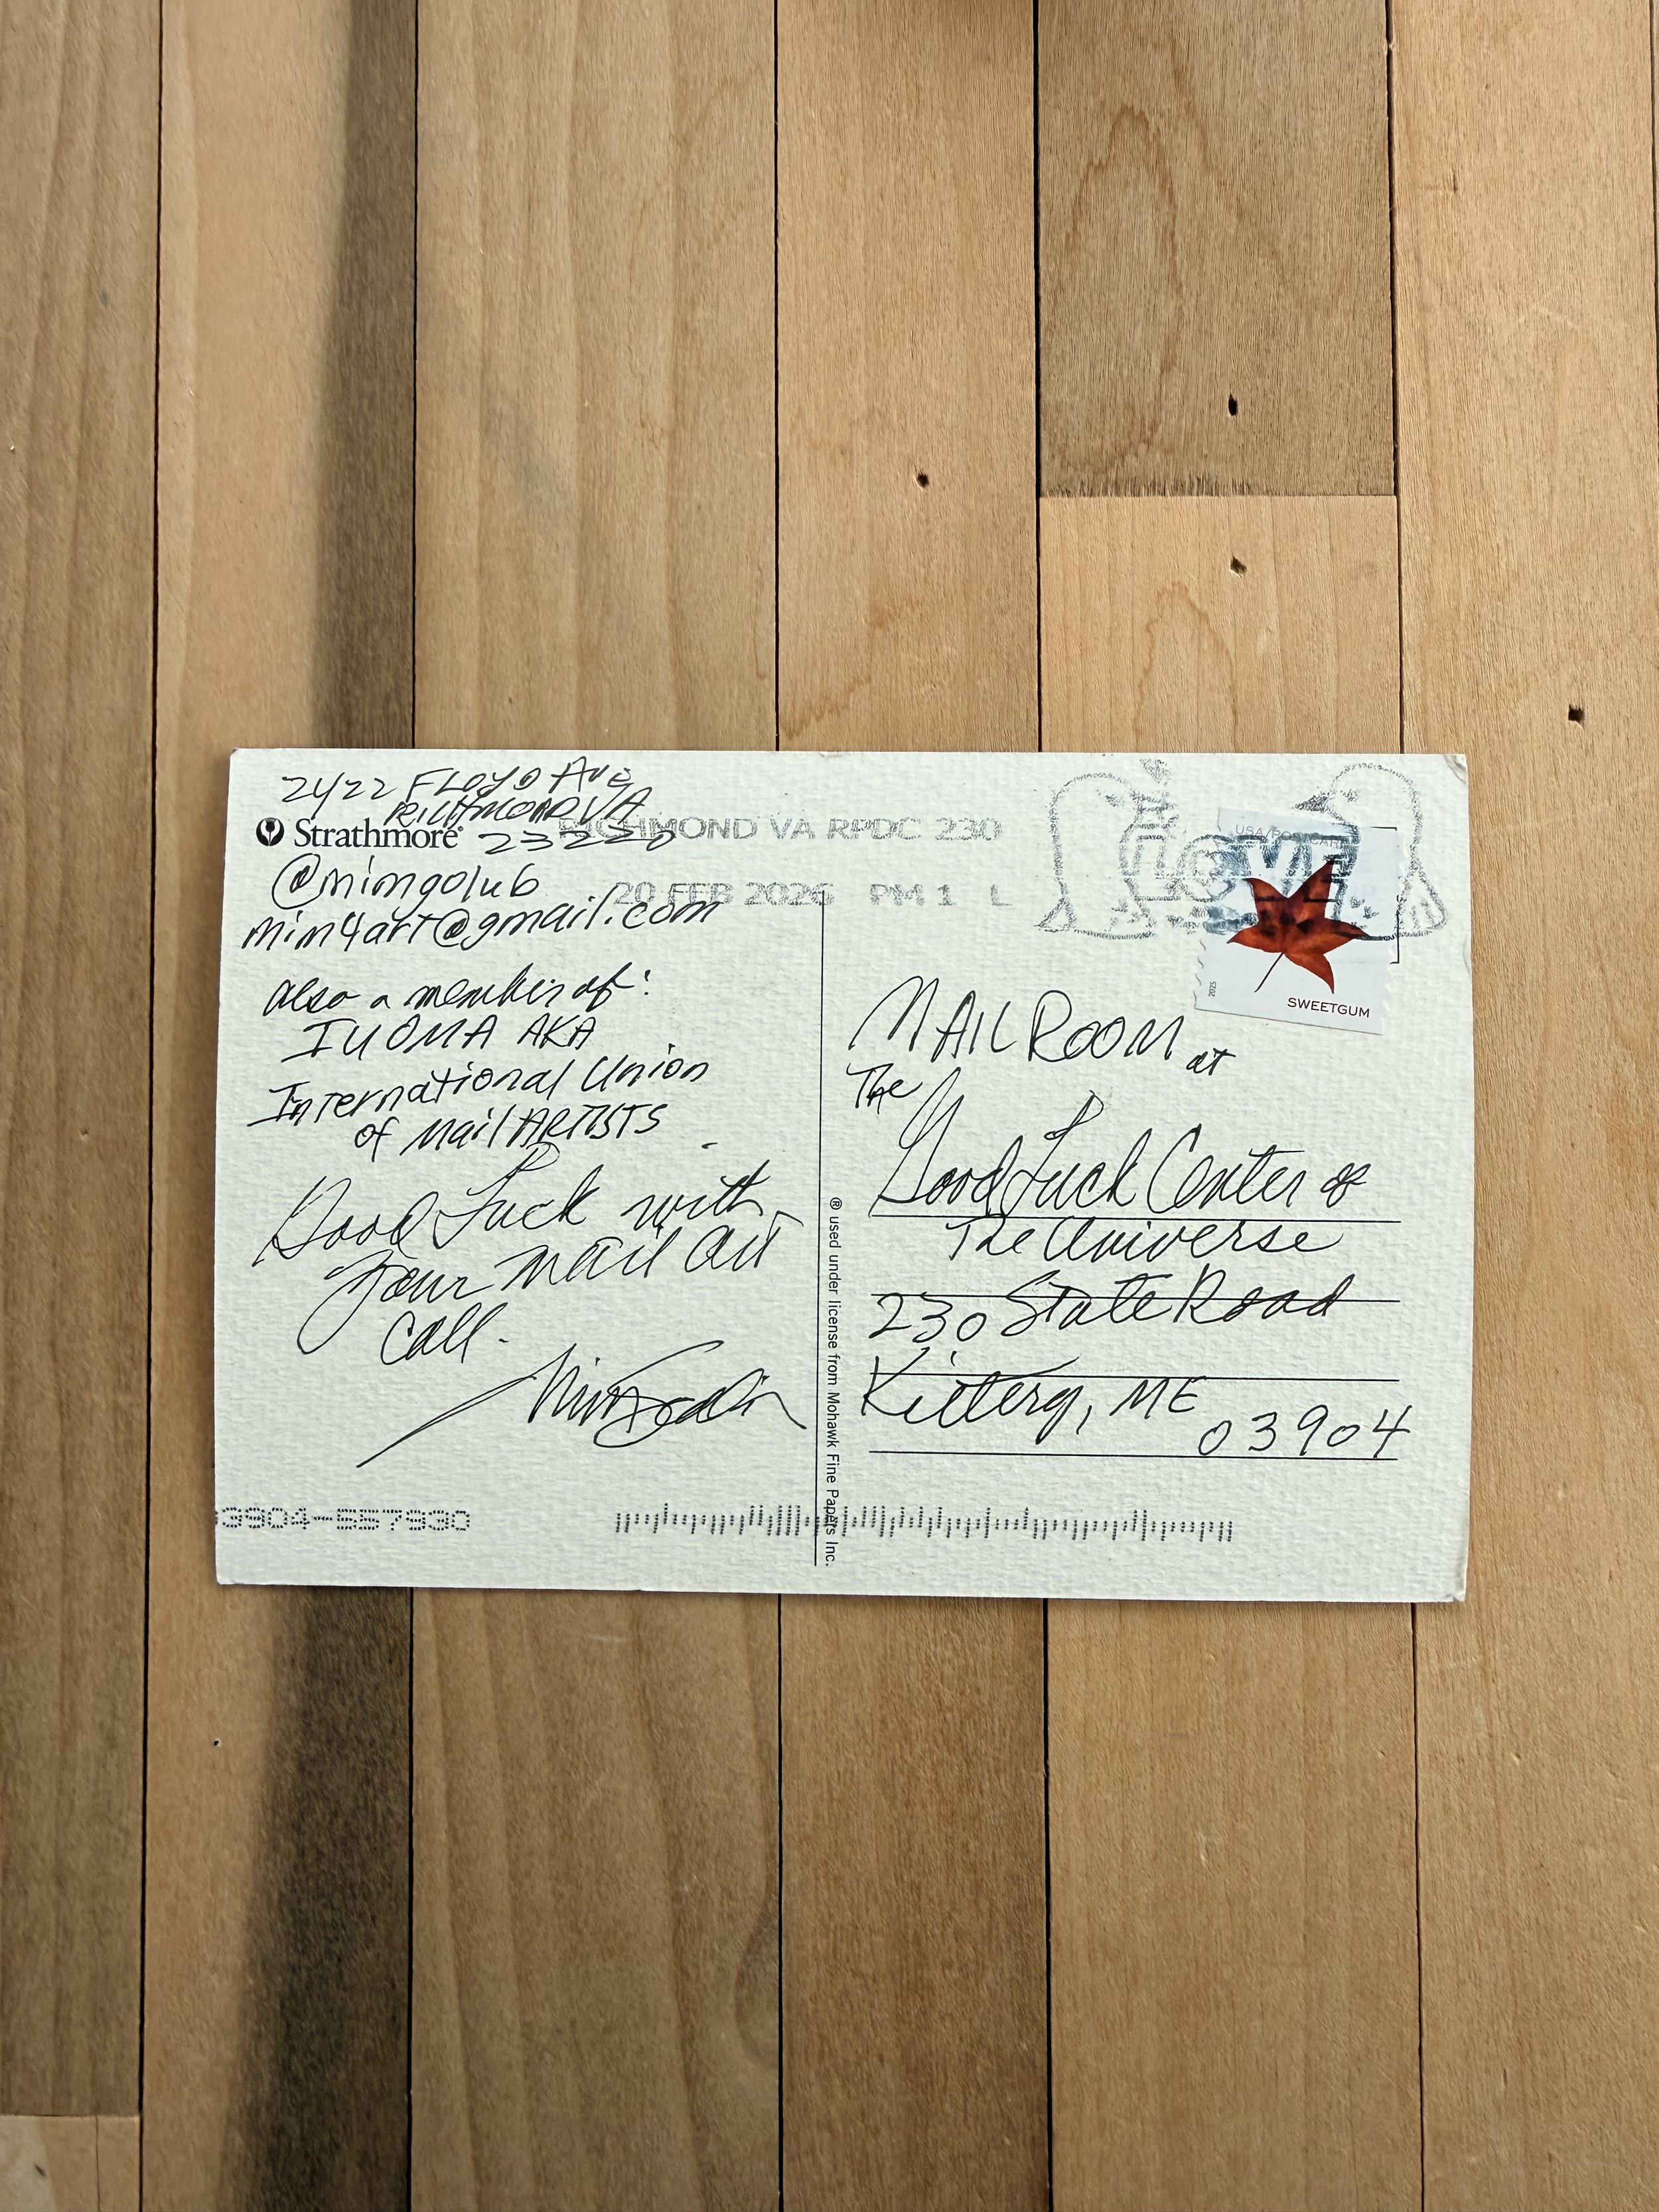 2422 FLOYD AVE
RICHMOND VA
Strathmore®
23220
@mimgolub
mim4art@gmail.com
Also a member of:
IUOMA AKA
International Union
of Mail ARTISTS
Good Luck with
your mail art
call.
RICHMOND VA RPDC 230
20 FEB 2026 PM 1 L
LOVE
2025
SWEETGUM
MAIL ROOM at
The
Good Luck Center of
The Universe
230 State Road
Kittery, ME
03904
® used under license from Mohawk Fine Papers Inc.
03904-557930